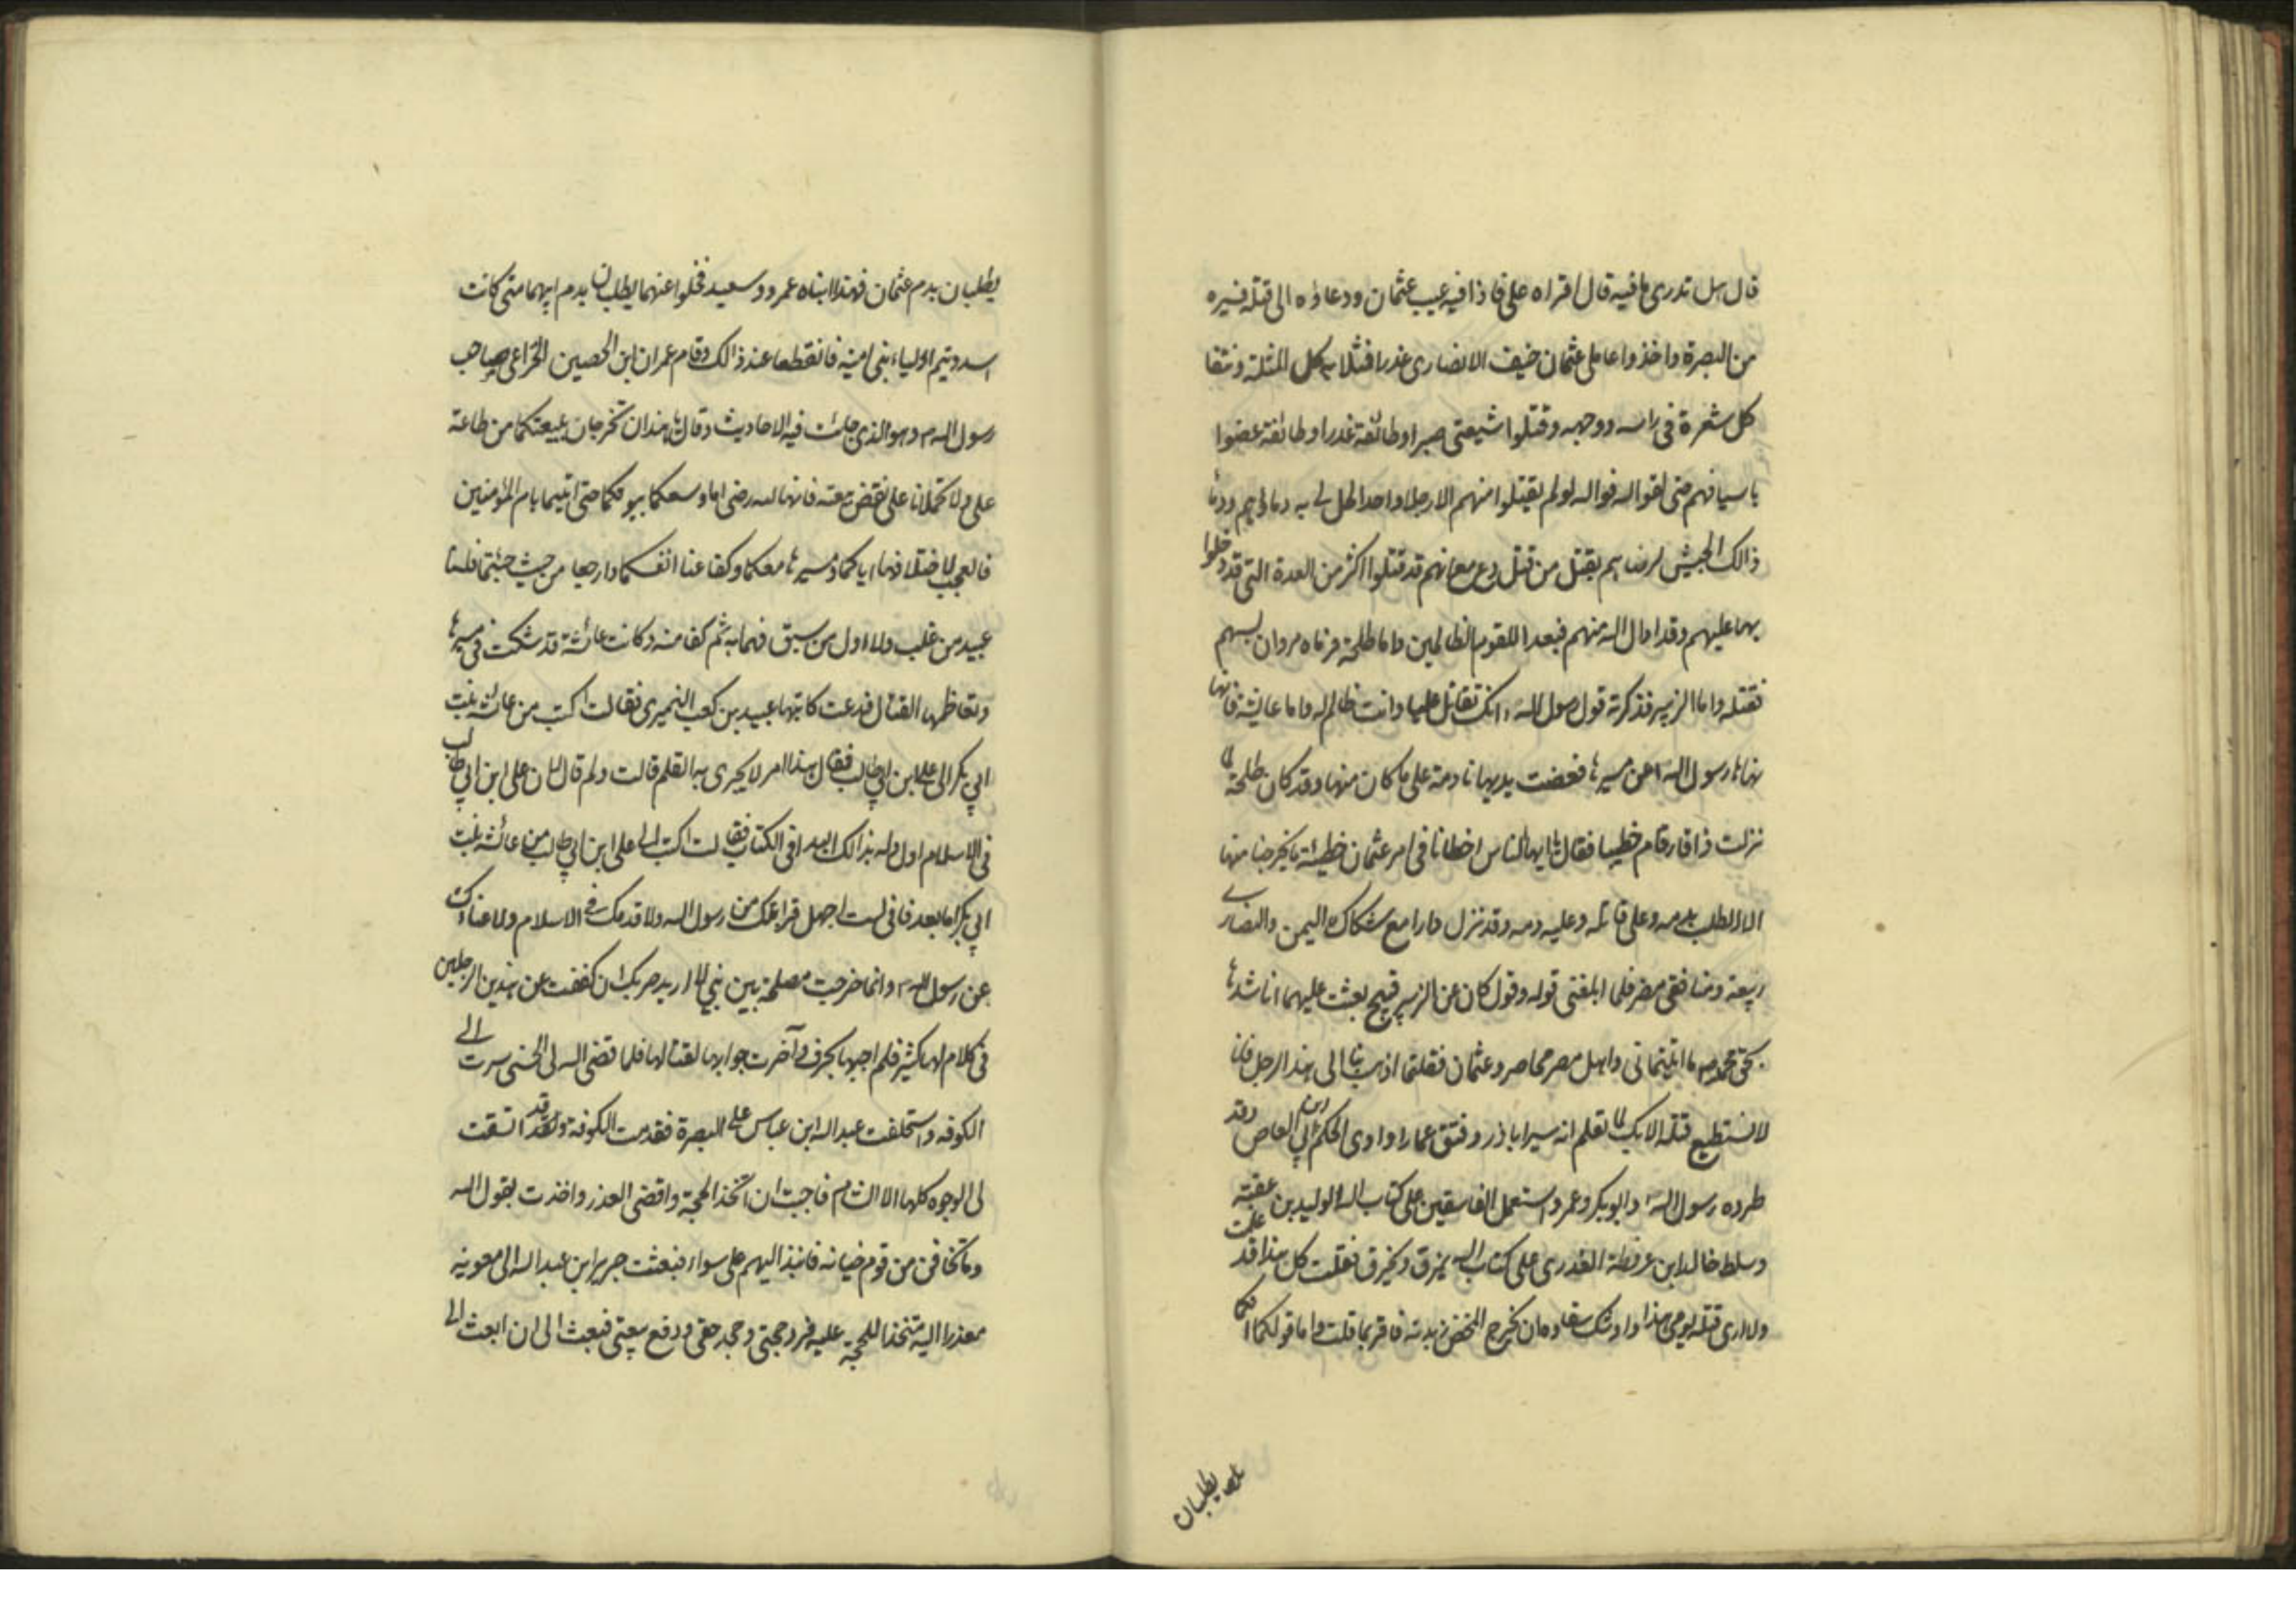 قال هل تدری ما فیه قال اقراه علی فاذا فیه عیب عثمان ودعاؤه الی قتله فسیره
من البصرة واخذوا عاملی عثمان حنیف الانصاری غدرا فمثلا به کل المثلة ونتفا
کل شعرة فی راسه ووجهه وقتلوا شیعتی صبرا وطائفة غدرا وطائفة عضوا
باسیافهم حتی لقوا الله فوالله لو لم یقتلوا منهم الا رجلا واحدا لحل لی به دماؤهم ودماء
ذالک الجیش لرضاهم بقتل من قتل دع مع انهم قد قتلوا اکثر من العدة التی قد دخلوا
بها علیهم وقد ادال الله منهم فبعدا للقوم الظالمین واما طلحة فرماه مروان بسهم
فقتله واما الزبیر فذکرته قول رسول الله انک تقاتل علیا وانت ظالم له واما عایشه فانها
نهاها رسول الله عن مسیرها فعضت یدیها نادمة علی ما کان منها وقد کان طلحة لما
نزلت ذاقار قام خطیبا فقال یا ایها الناس اخطانا فی امر عثمان خطیئة ما یخرجنا منها
الا الطلب بدمه وعلی قاتله وعلیه دمه وقد نزل دارا مع شکاک الیمن والنصاری
ربیعة ومنافقی مضر فلما ابلغنی قوله وقول کان عن الزبیر قبیح بعثت علیهما اناشدها
بحق محمد ما اتیتمانی واهل مصر محاصروا عثمان فقلتما اذهب بنا الی هذا الرجل فانا
لا نستطیع قتله الا بک لما تعلم انه سیر اباذر وفتق عمارا واوی الحکم ابن ابی العاص وقد
طرده رسول الله وابوبکر وعمر واستعمل الفاسقین علی کتاب الله الولید بن عقبة
وسلط خالد ابن عرفطة العذری علی کتاب الله یمزق ویخرق فقلت کل هذا قد علمت
ولا اری قتله یومی هذا واوشک سقاوه ان یخرج المخض زبدته فاقر بما قلت واما قولکما انکما
یطلبان
یطلبان بدم عثمان فهذا ابناه عمرو وسعید فخلوا عنهما یطلبان بدم ابیهما متی کانت
اسد وتیم اولیاء بنی امیة فانقطعا عند ذالک وقام عمران ابن الحصین الخزاعی صاحب
رسول الله وهو الذی جاءت فیه الاحادیث وقال یا هذان لا تخرجان ببیعتکما من طاعة
علی ولا تحملانا علی نقض بیعته فانها لله رضی اما وسعتکما بیوتکما حتی اتیتما بام المؤمنین
فالعجب لاختلافها ایاکما ومسیرها معکما وکفا عنا انفسکما وارجعا من حیث جئتما فلسنا
عبید من غلب ولا اول من سبق فهما به ثم کفا منه وکانت عائشة قد شکت فی مسیرها
وتعاظمها القتال فدعت کاتبها عبید بن کعب النمیری فقالت اکتب من عائشة بنت
ابی بکر الی علی ابن ابی طالب فقال هذا امر لا یجری به القلم قالت ولم قال لان علی ابن ابی طالب
فی الاسلام اول وله بذالک البداء فی الکتاب فقالت اکتب الی علی ابن ابی طالب من عائشة بنت
ابی بکر اما بعد فانی لست اجهل قرابتک من رسول الله ولا قدمک فی الاسلام ولا عناءک
عن رسول الله وانما خرجت مصلحة بین بنی لا ارید حربک ان کففت عن هذین الرجلین
فی کلام لها کثیر فلم اجبها بحرف واخرت جوابها لقتالها فلما قضی الله لی الحسنی سرت الی
الکوفه واستخلفت عبدالله ابن عباس علی البصرة فقدمت الکوفة وقد اتسقت
لی الوجوه کلها الا الشام فاحببت ان اتخذ الحجة واقضی العذر واخذت بقول الله
وما تخافن من قوم خیانة فانبذ الیهم علی سواء فبعثت جریر ابن عبدالله الی معویه
معذرا الیه متخذا للحجة علیه فرد حجتی وجحد حقی ودفع بیعتی فبعث الی ان ابعث الی